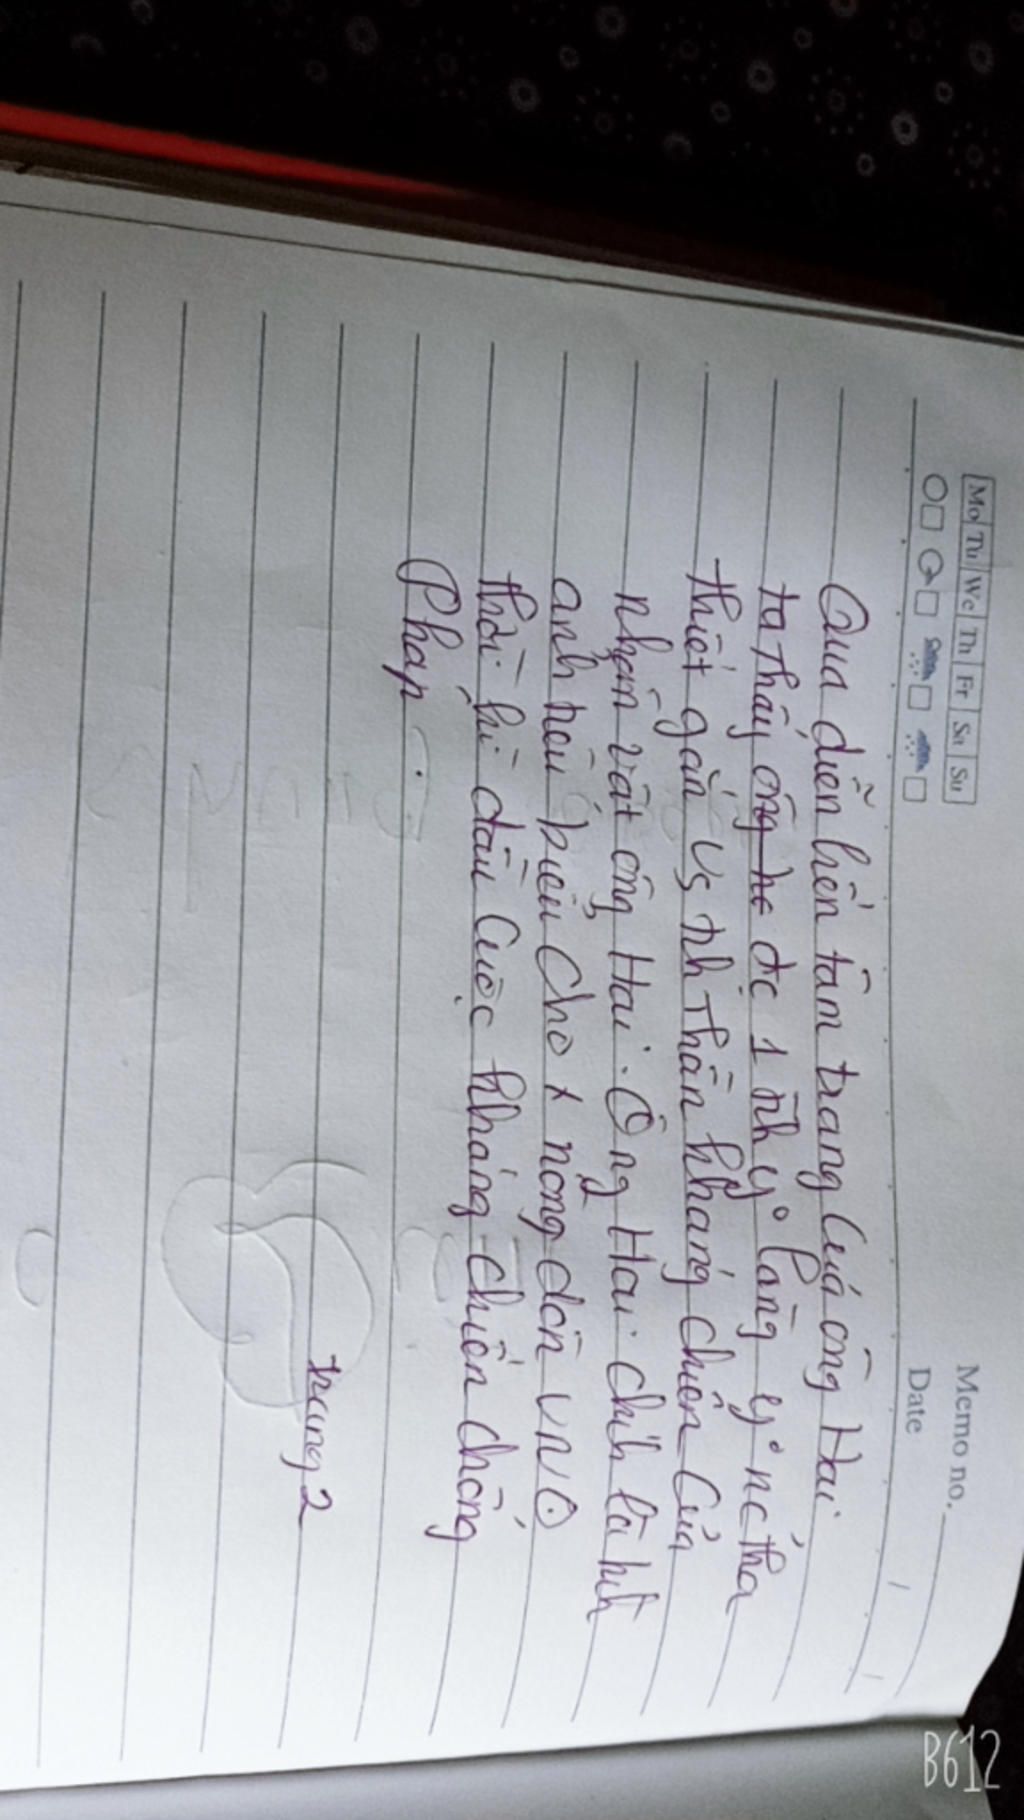 Mo Tu We Th Fr Sa Su
Memo no.
Date
Qua diễn biến tâm trạng của ông Hai
ta thấy ông đc 1 ty làng y nc tha
thiết gắn vs tinh thần kháng chiến của
nhân vật ông Hai. Ông Hai chính là hình
ảnh tiêu biểu cho 1 nông dân VN ở
thời kì đầu cuộc kháng chiến chống
Pháp.
trang 2
B612